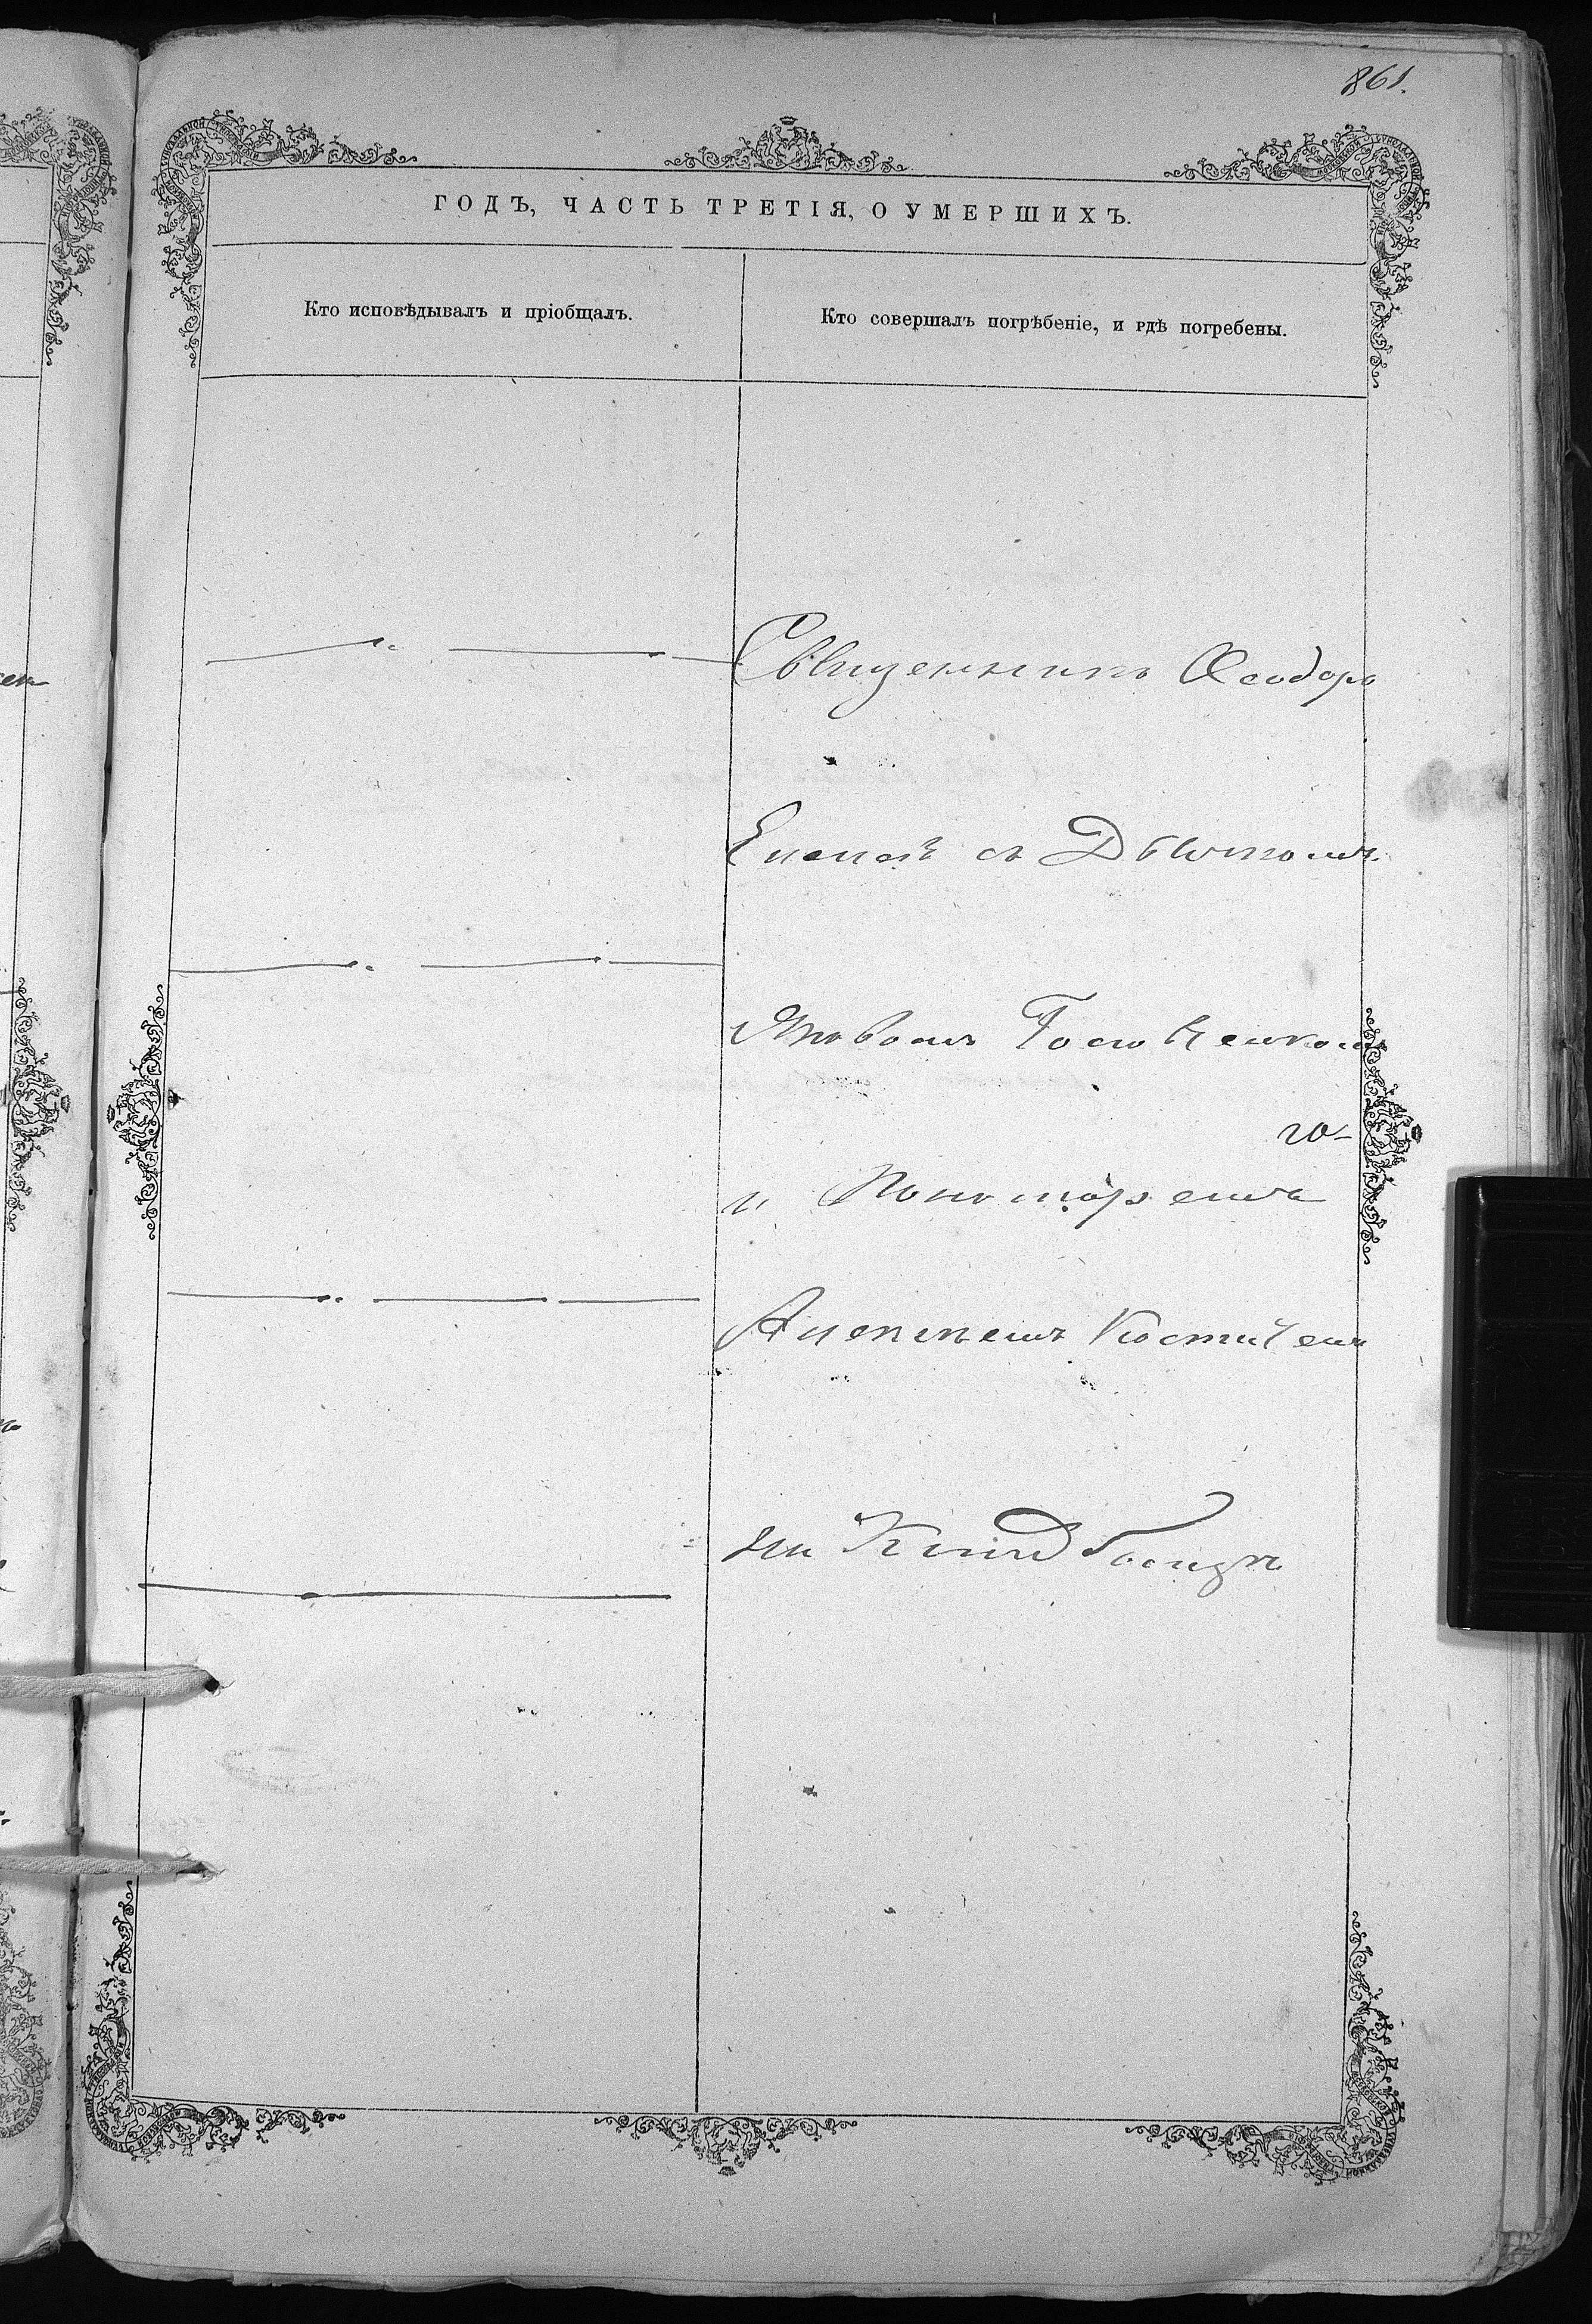 861.
ГОДЪ, ЧАСТЬ ТРЕТІЯ, О УМЕРШИХЪ.
Кто исповѣдывалъ и пріобщалъ.
Кто совершалъ погрѣбеніе, и гдѣ погребены.
Священникъ Ѳеодоръ
съ Дьячкомъ
Яковомъ
го-
и Пономаремъ
на Кладбищѣ